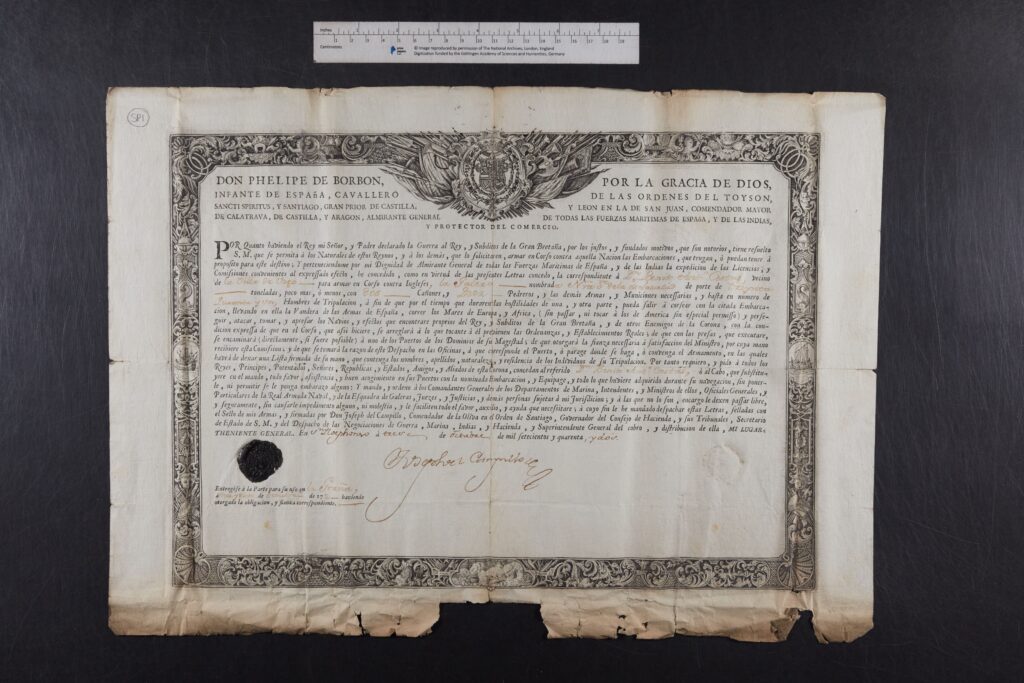 inches
1 2 3 4 5 6 7
Centimetres
© Image reproduced by permission of The National Archives, London, England
Digitisation funded by the Göttingen Academy of Sciences and Humanities, Germany
SP1
DON PHELIPE DE BORBON, POR LA GRACIA DE DIOS,
INFANTE DE ESPAñA, CAVALLERO DE LAS ORDENES DEL TOYSON,
SANCTI SPIRITUS, Y SANTIAGO, GRAN PRIOR DE CASTILLA, Y LEON EN LA DE SAN JUAN, COMENDADOR MAYOR
DE CALATRAVA, DE CASTILLA, Y ARAGON, ALMIRANTE GENERAL DE TODAS LAS FUERZAS MARITIMAS DE ESPAñA, Y DE LAS INDIAS,
Y PROTECTOR DEL COMERCIO.
POR Quanto haviendo el Rey mi Señor, y Padre declarado la Guerra al Rey, y Subditos de la Gran Bretaña, por los justos, y fundados motivos, que son notorios, tiene resuelto
S. M. que se permita à los Naturales de estos Reynos, y à los demàs, que lo solicitaren, armar en Corso contra aquella Nacion las Embarcaciones, que tengan, ò puedan tener à
proposito para este destino; Y perteneciendome por mi Dignidad de Almirante General de todas las Fuerzas Maritimas de España, y de las Indias la expedicion de las Licencias, y
Comissiones convenientes al expressado efecto, he concedido, como en virtud de las presentes Letras concedo, la correspondiente à vecino
de la para armar en Corso contra Ingleses, la nombrada de porte de
toneladas, poco mas, ò menos, con Cañones, y Pedreros, y las demàs Armas, y Municiones necessarias, y hasta en número de
Hombres de Tripulacion, à fin de que por el tiempo que duraren las hostilidades de una, y otra parte, pueda salir à corsear con la citada Embarca-
cion, llevando en ella la Vandera de las Armas de España, correr los Mares de Europa, y Africa, (sin passar, ni tocar à los de America sin especial permisso) y perse-
guir, atacar, tomar, y apresar los Navios, y efectos que encontrare proprios del Rey, y Subditos de la Gran Bretaña, y de otros Enemigos de la Corona, con la con-
dicion expressa de que en el Corso, que assi hiciere, se arreglarà à lo que tocante à èl previenen las Ordenanzas, y Establecimientos Reales; de que con las presas, que executare,
se encaminarà (directamente, si fuere possible) à uno de los Puertos de los Dominios de su Magestad; de que otorgarà la fianza necessaria à satisfaccion del Ministro, por cuya mano
recibiere esta Comission; y de que se tomarà la razon de este Despacho en las Oficinas, à que corresponde el Puerto, ò parage donde se haga, ò contenga el Armamento, en las quales
havrà de dexar una Lista firmada de su mano, que contenga los nombres, apellidos, naturaleza, y residencia de los Individuos de su Tripulacion. Por tanto requiero, y pido à todos los
Reyes, Principes, Potentados, Señores, Republicas, y Estados, Amigos, y Aliados de esta Corona, concedan al referido ò al Cabo, que substitu-
yere en el mando, todo favor, assistencia, y buen acogimiento en sus Puertos con la nominada Embarcacion, y Equipage, y todo lo que huviere adquirido durante su navegacion, sin poner-
le, ni permitir se le ponga embarazo alguno: Y mando, y ordeno à los Comandantes Generales de los Departamentos de Marina, Intendentes, y Ministros de ella, Oficiales Generales, y
Particulares de la Real Armada Naval, y de la Esquadra de Galeras, Juezes, y Justicias, y demàs personas sujetas à mi Jurisdiccion; y à las que no lo son, encargo le dexen passar libre,
y seguramente, sin causarle impedimento alguno, ni molestia, y le faciliten todo el favor, auxilio, y ayuda que necessitare; à cuyo fin he mandado despachar estas Letras, selladas con
el Sello de mis Armas, y firmadas por Don Joseph del Campillo, Comendador de la Oliva en el Orden de Santiago, Governador del Consejo de Hacienda, y sus Tribunales, Secretario
de Estado de S. M. y del Despacho de las Negociaciones de Guerra, Marina, Indias, y Hacienda, y Superintendente General del cobro, y distribucion de ella, MI LUGAR-
THENIENTE GENERAL. En Sn Ildephonso à trece de Octubre de mil setecientos y quarenta, y dos.
Entregòse à la Parte para su uso en
de de 17 haviendo
otorgado la obligacion, y fianza correspondiente.